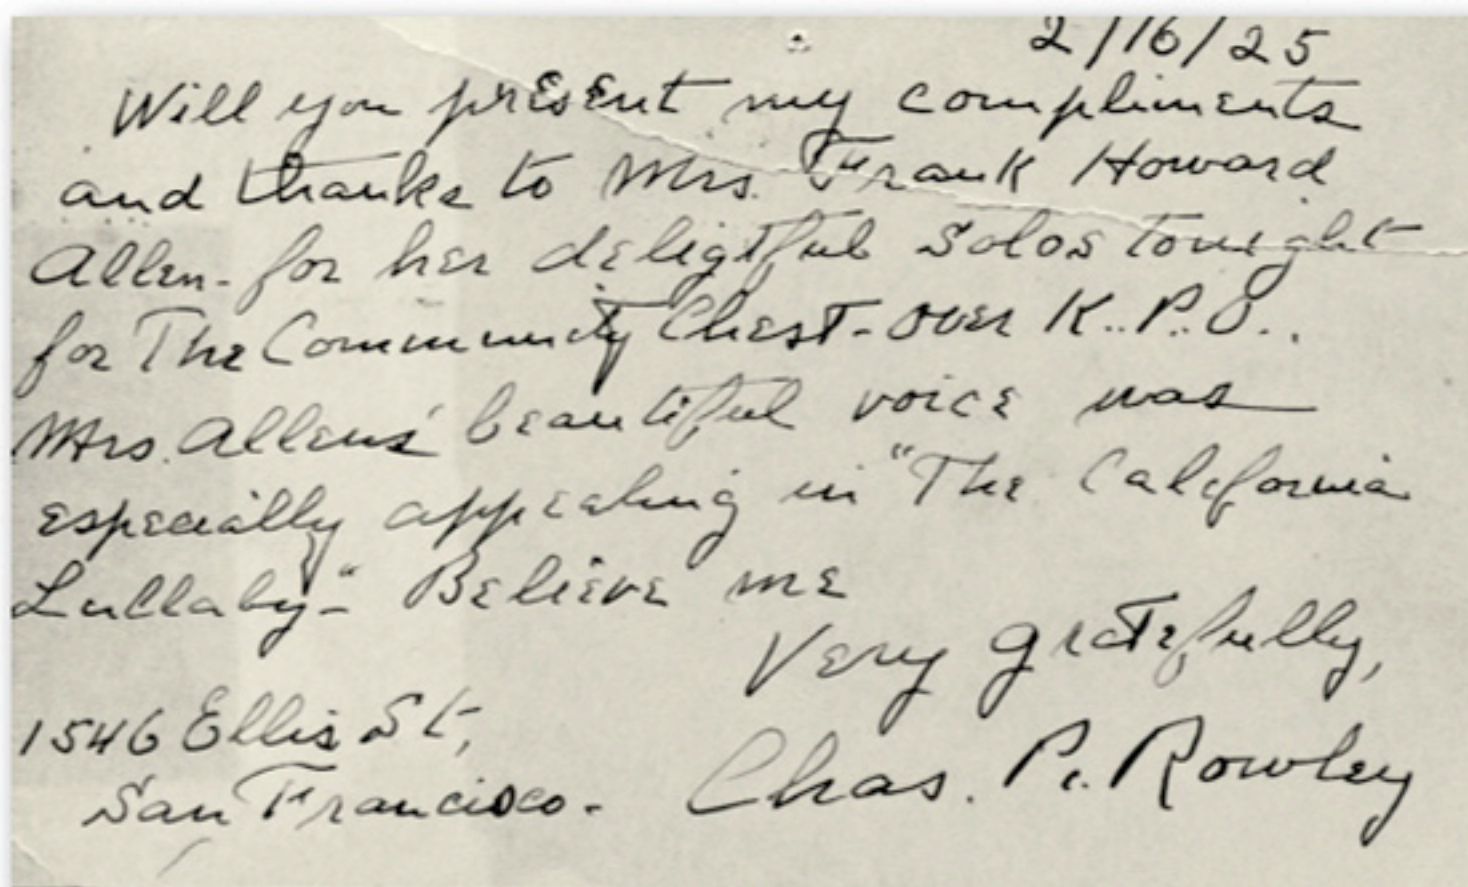 2/16/25
Will you present my compliments
and thanks to Mrs. Frank Howard
Allen - for her deligtful solos tonight
for The Community Chest - over K.. P.. O..
Mrs. Allens' beautiful voice was
especially appealing in "The California
Lullaby" - Believe me
Very gratefully,
1546 Ellis St,
San Francisco -
Chas. P. Rowley